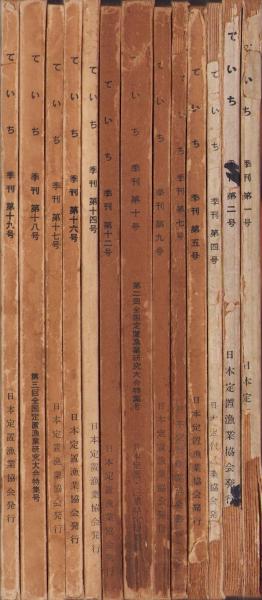 ていち 季刊 第一号 日本定
ていち 第二号 日本定置漁業協会発行
ていち 季刊 第四号
ていち 季刊 第五号 日本定置漁業協会発行
季刊 第七号
ていち 季刊 第九号 日本定置漁業協会発行
ていち 季刊 第十号 第二回全国定置漁業研究大会特集号
ていち 季刊 第十二号 日本定置漁業協会発行
ていち 季刊 第十四号 日本定置漁業協会発行
ていち 季刊 第十六号 日本定置漁業協会発行
ていち 季刊 第十七号 日本定置漁業協会発行
ていち 季刊 第十八号 第三回全国定置漁業研究大会特集号
ていち 季刊 第十九号 日本定置漁業協会発行